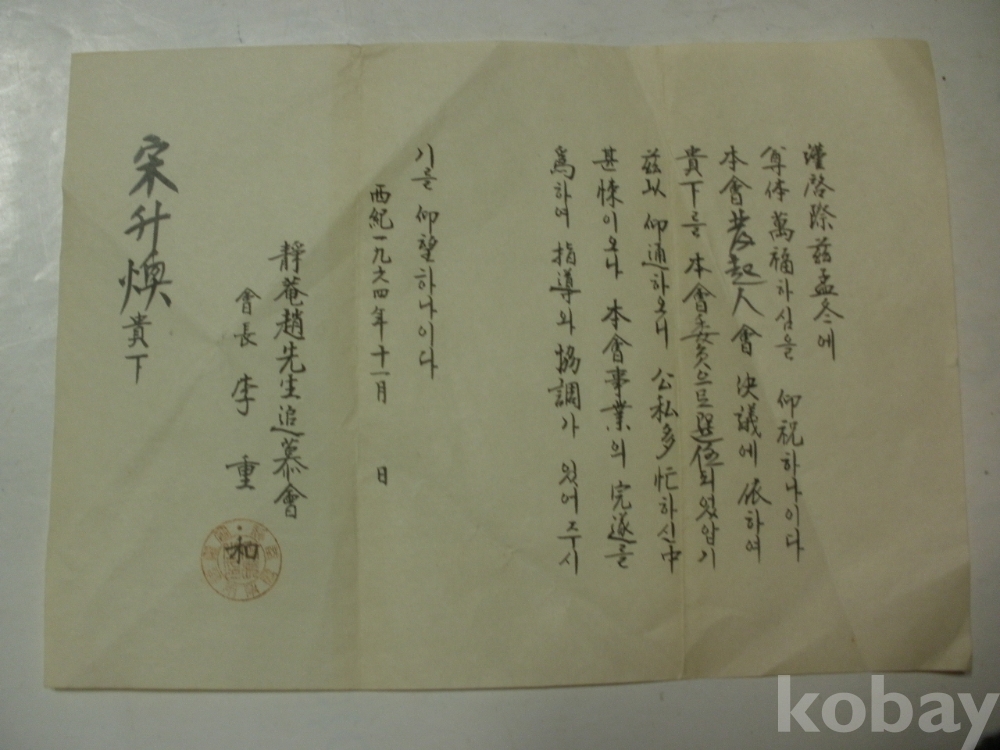 謹啓際玆孟冬에
尊体萬福하심을 仰祝하나이다
本會發起人會 決議에 依하여
貴下를 本會委員으로 選任되였압기
玆以 仰通하오니 公私多忙하신中
甚悚이오나 本會事業의 完遂를
爲하여 指導와 協調가 있어주시
기를 仰望하나이다
西紀一九六四年十一月 日
靜菴趙先生追慕會
會長 李重和
宋升煥 貴下
kobay